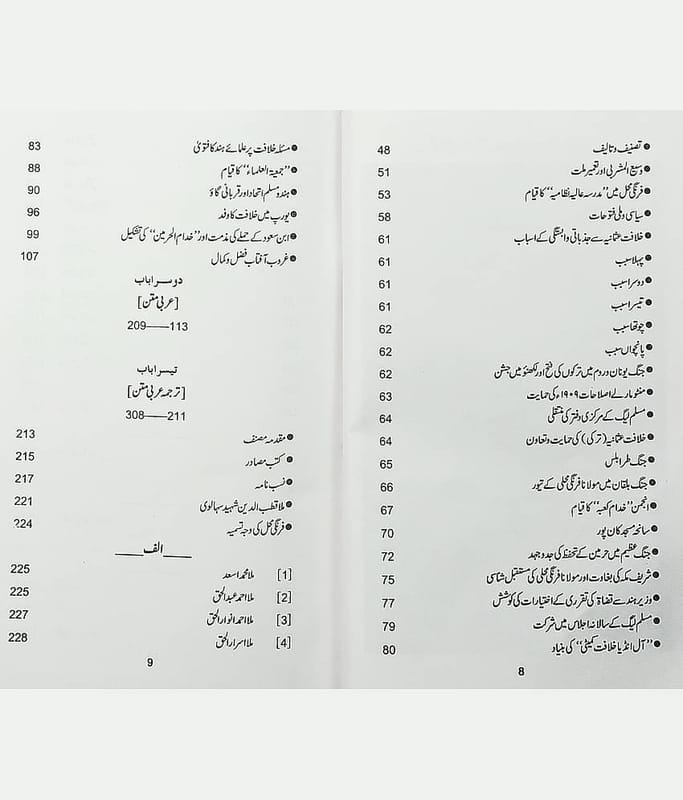 ● تصنیف و تالیف 48
● وسیع المشربی اور تعمیر ملت 51
● فرنگی محل میں ”مدرسہ عالیہ نظامیہ“ کا قیام 53
● سیاسی و ملی فتوحات 58
● خلافت عثمانیہ سے جذباتی وابستگی کے اسباب 61
● پہلا سبب 61
● دوسرا سبب 61
● تیسرا سبب 61
● چوتھا سبب 62
● پانچواں سبب 62
● جنگ یونان و روم میں ترکوں کی فتح اور لکھنؤ میں جشن 62
● منٹو مارلے اصلاحات ۱۹۰۹ء کی حمایت 63
● مسلم لیگ کے مرکزی دفتر کی منتقلی 64
● خلافت عثمانیہ (ترکی) کی حمایت و تعاون 64
● جنگ طرابلس 65
● جنگ بلقان میں مولانا فرنگی محلی کے تیور 66
● انجمن ”خدام کعبہ“ کا قیام 67
● سانحہ مسجد کان پور 70
● جنگ عظیم میں حرمین کے تحفظ کی جدوجہد 72
● شریف مکہ کی بغاوت اور مولانا فرنگی محلی کی مستقبل شناسی 75
● وزیر ہند سے قضاۃ کی تقرری کے اختیارات کی کوشش 77
● مسلم لیگ کے سالانہ اجلاس میں شرکت 79
● ”آل انڈیا خلافت کمیٹی“ کی بنیاد 80
8
● مسئلہ خلافت پر علمائے ہند کا فتویٰ 83
● ”جمعیۃ العلماء“ کا قیام 88
● ہندو مسلم اتحاد اور قربانی گاؤ 90
● یورپ میں خلافت کا وفد 96
● ابن سعود کے حملے کی مذمت اور ”خدام الحرمین“ کی تشکیل 99
● غروب آفتاب فضل و کمال 107
دوسرا باب
[عربی متن]
113——209
تیسرا باب
[ترجمہ عربی متن]
211——308
● مقدمہ مصنف 213
● کتب مصادر 215
● نسب نامہ 217
● ملا قطب الدین شہید سہالوی 221
● فرنگی محل کی وجہ تسمیہ 224
____الف____
[1] ملا محمد اسعد 225
[2] ملا احمد عبدالحق 225
[3] ملا احمد انوار الحق 227
[4] ملا اسرار الحق 228
9